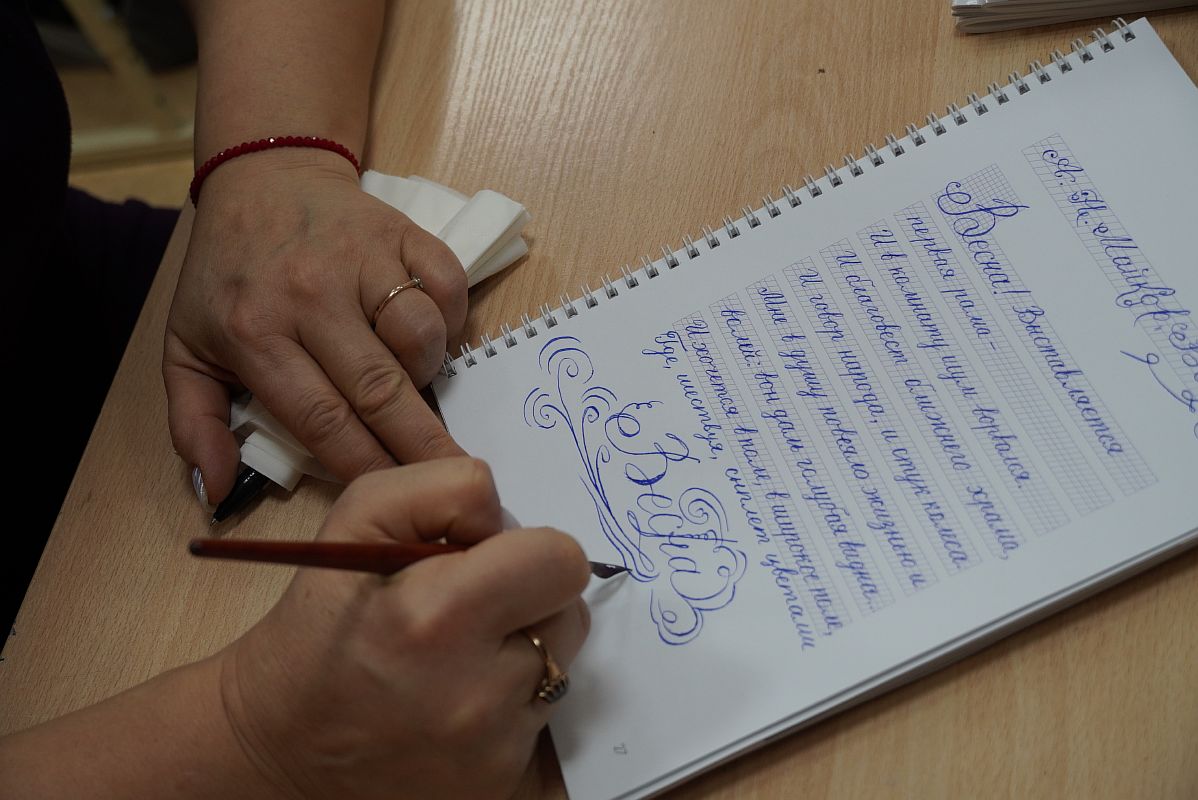 А. Н. Майков
Весна! Выставляется
первая рама-
И в комнату шум ворвался.
И благовест ближнего храма,
И говор народа, и стук колеса.
Мне в душу повеяло жизнью и
волей: вон даль голубая видна...
И хочется в поле, в широкое поле,
Где, шествуя, сыплет цветами
Весна
27